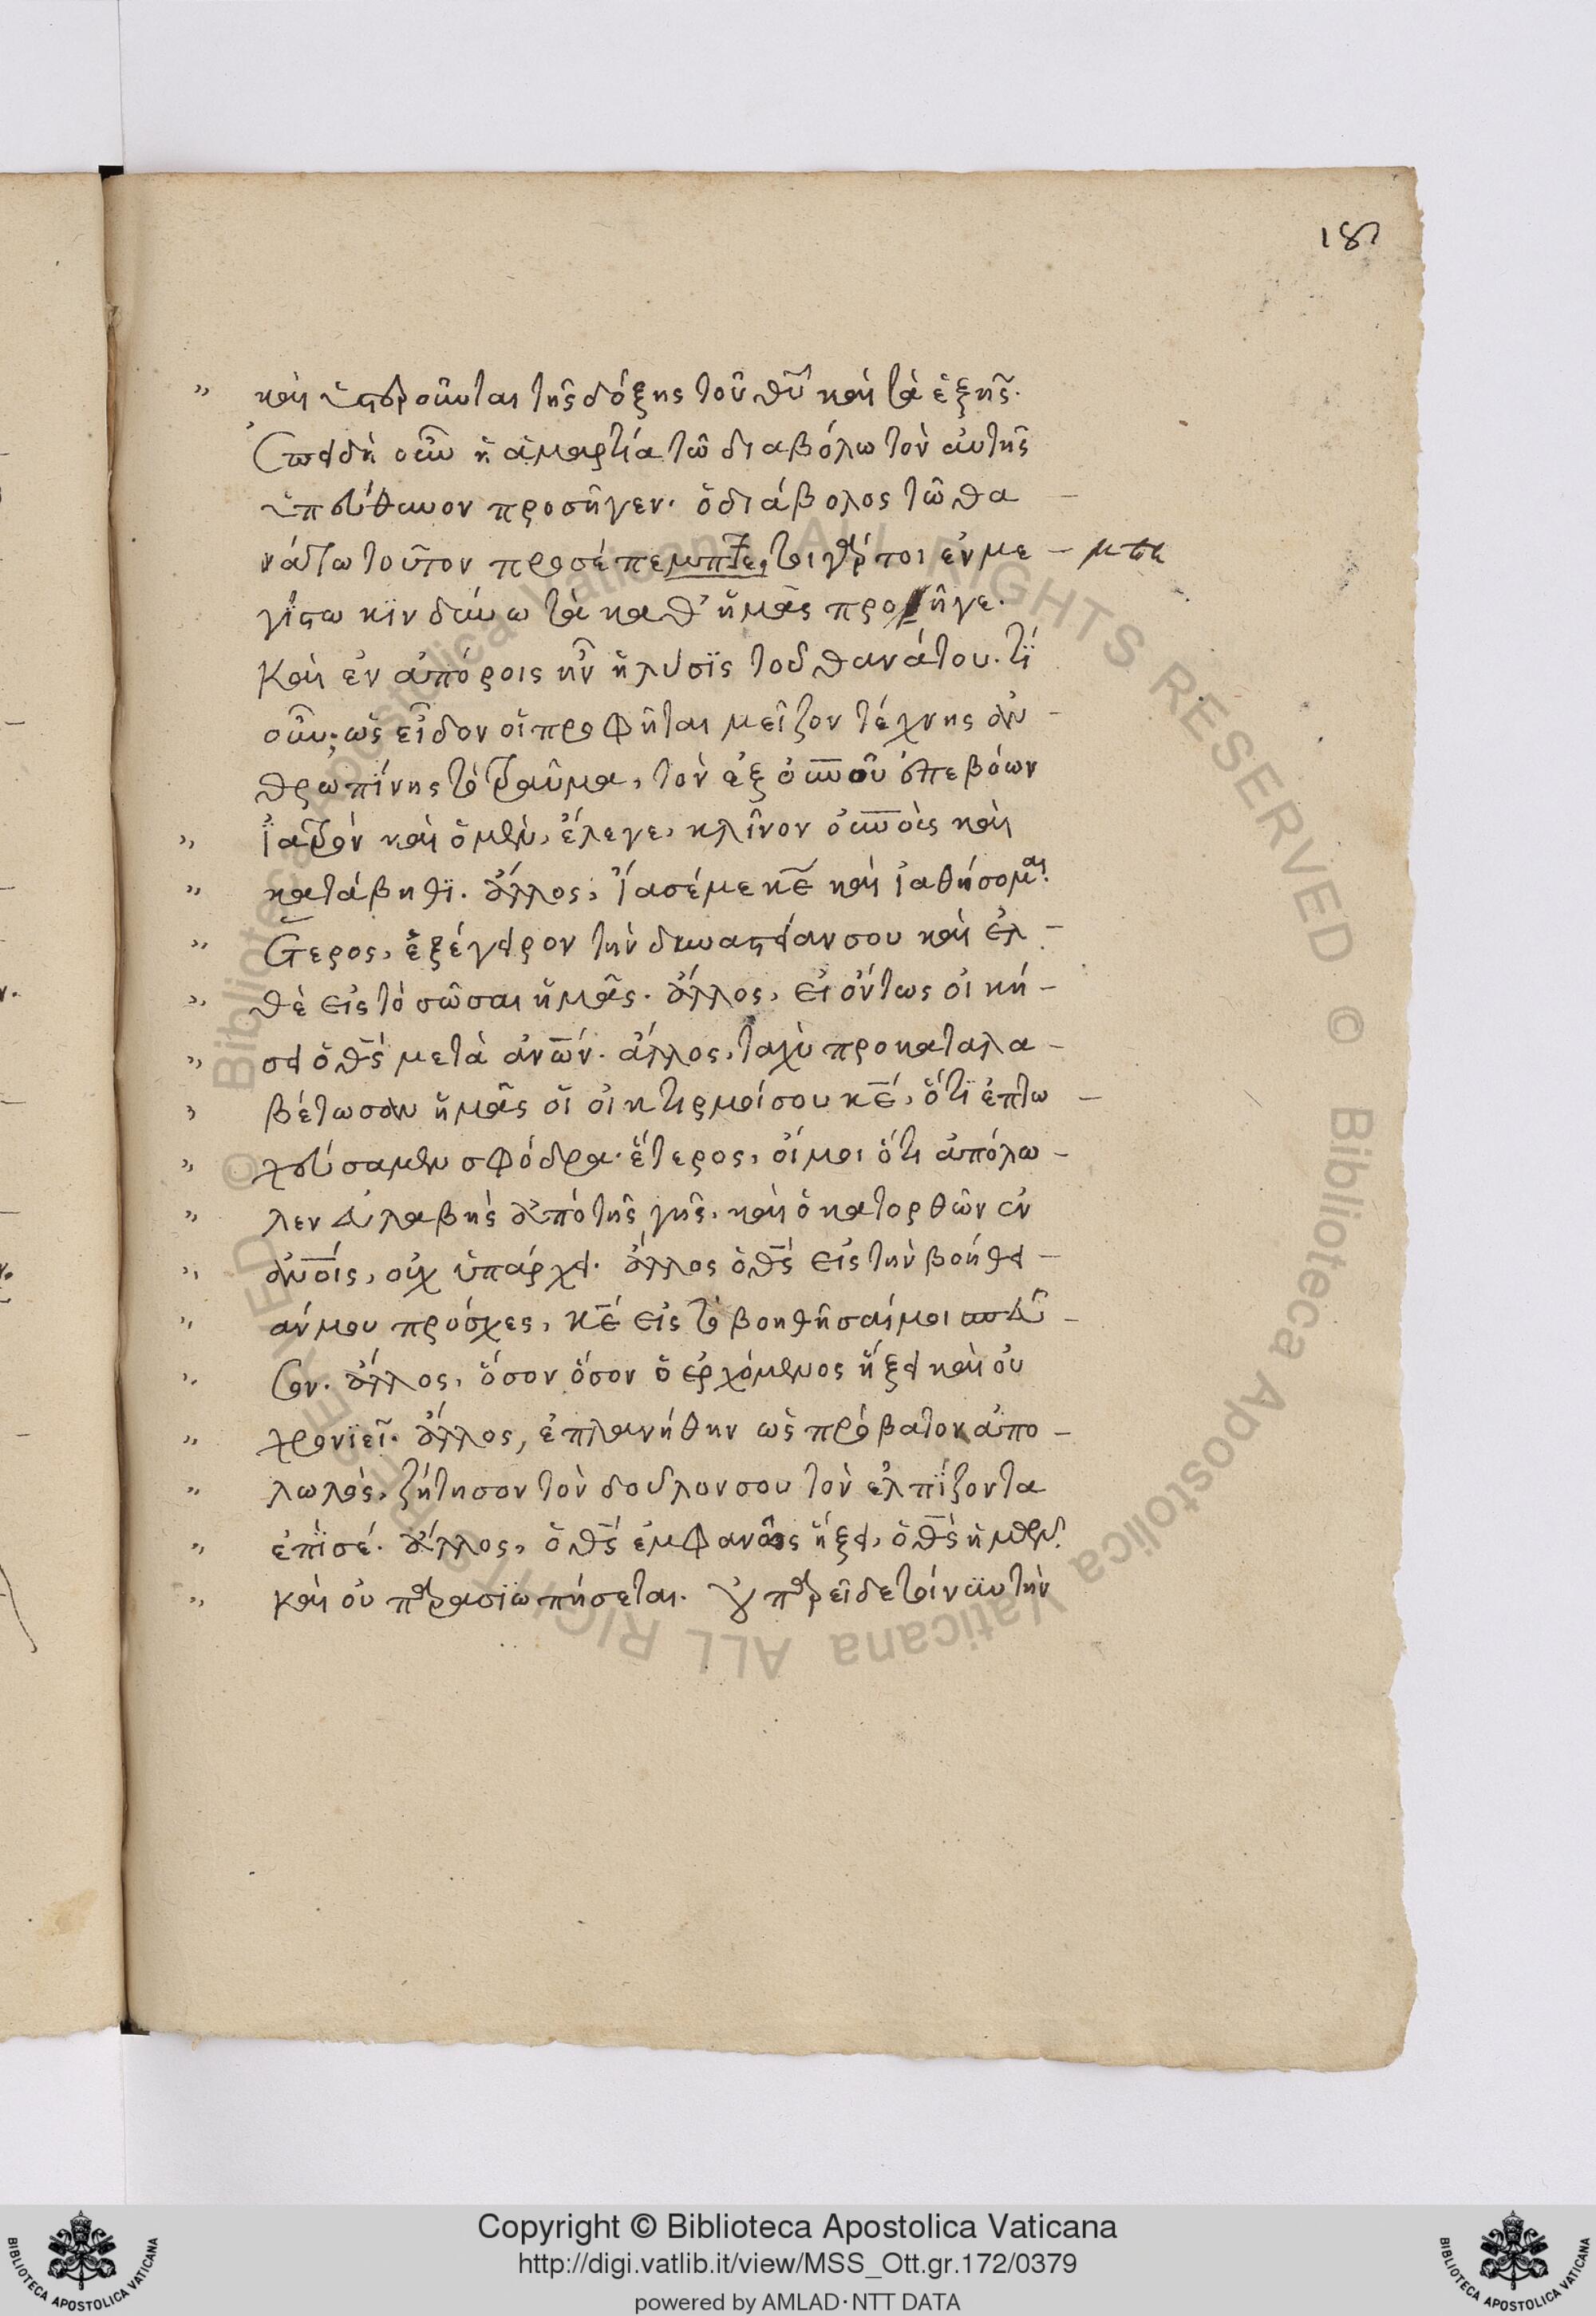 187
καὶ ὑστεροῦνται τῆς δόξης τοῦ θυ καὶ τὰ ἑξῆς.
Ἐπειδὴ οὖν ἡ ἁμαρτία τῶ διαβόλω τὸν αὐτῆς
ὑπεύθυνον προσῆγεν. ὁ διάβολος τῶ θα
νάτω τοῦτον προσέπεμπε, ἐν με – μπε
γίστω κϊνδύνω τὰ καθ' ἡμᾶς προῆγε.
Καὶ ἐν ἀπόροις ἦν ἡ λύσϊς τοῦ θανάτου. τί
οὖν; ὡς εἶδον οἱ προφῆται μεῖζον τέχνης ἀν –
θρωπίνης τὸ τραῦμα, τὸν ἐξ οὐνοῦ ἐπεβόων
ἰατρόν καὶ ὁ μὲν, ἔλεγε, κλῖνον οὐνοὺς καὶ
κατάβηθϊ. ἄλλος, ἴασέ με κε καὶ ἰαθήσομαι.
ἕτερος, ἐξέγειρον τὴν δυναστείαν σου καὶ ἐλ –
θὲ εἰς τὸ σῶσαι ἡμᾶς. ἄλλος, εἰ ὄντως οἰκή –
σει ὁ θς μετὰ ἀνων. ἄλλος, ταχὺ προκαταλα –
βέτωσαν ἡμᾶς οἱ οἰκτιρμοί σου κε, ὅτϊ ἐπτω –
χεύσαμεν σφόδρα. ἕτερος, οἴμοι ὅτι ἀπόλω –
λεν εὐλαβὴς ἀπὸ τῆς γῆς, καὶ ὁ κατορθῶν ἐν
ἀνοις, οὐχ ὑπάρχει. ἄλλος ὁ θς εἰς τὴν βοήθει –
άν μου πρόσχες, κε εἰς τὸ βοηθῆσαί μοι σπεῦ –
σον. ἄλλος, ὅσον ὅσον ὁ ἐρχόμενος ἥξει καὶ οὐ
χρονϊεῖ. ἄλλος, ἐπλανήθην ὡς πρόβατον ἀπο –
λωλὸς, ζήτησον τὸν δοῦλον σου τὸν ἐλπίζοντα
ἐπὶ σέ. ἄλλος, ὁ θς ἐμφανῶς ἥξει, ὁ θς ἡμῶν
καὶ οὐ παρασϊωπήσεται. οὐ περιεῖδε τοίνυν τὴν
Copyright © Biblioteca Apostolica Vaticana
http://digi.vatlib.it/view/MSS_Ott.gr.172/0379
powered by AMLAD·NTT DATA
BIBLIOTECA APOSTOLICA VATICANA
BIBLIOTECA APOSTOLICA VATICANA
© Biblioteca Apostolica Vaticana ALL RIGHTS RESERVED © Biblioteca Apostolica Vaticana ALL RIGHTS RESERVED